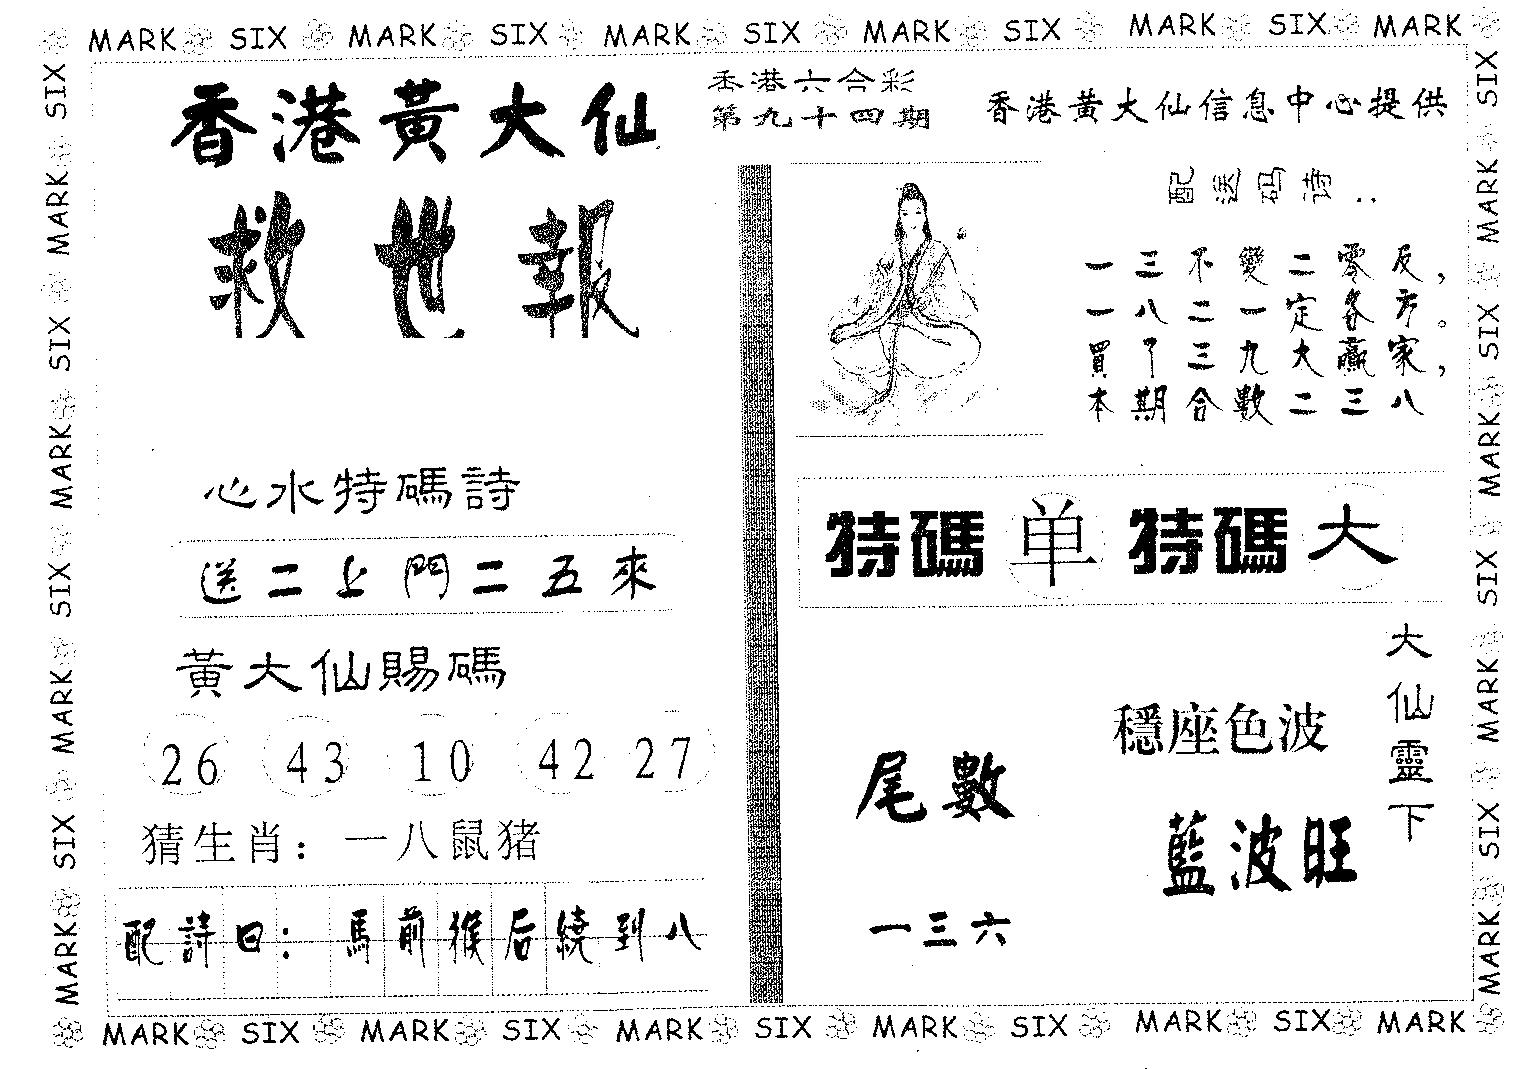 MARK SIX MARK SIX MARK SIX MARK SIX MARK SIX MARK
香港黃大仙
救世報
香港六合彩
第九十四期
香港黃大仙信息中心提供
配送码诗：
一三不變二零反，
一八二一定各方。
買了三九大贏家，
本期合數二三八
心水特碼詩
送二上門二五來
黃大仙賜碼
26 43 10 42 27
猜生肖：一八鼠猪
配詩曰：馬前猴后繞到八
特碼单特碼大
大仙靈下
穩座色波
藍波旺
尾數
一三六
SIX MARK SIX MARK SIX MARK SIX MARK
SIX MARK SIX MARK SIX MARK SIX MARK
MARK SIX MARK SIX MARK SIX MARK SIX MARK SIX MARK